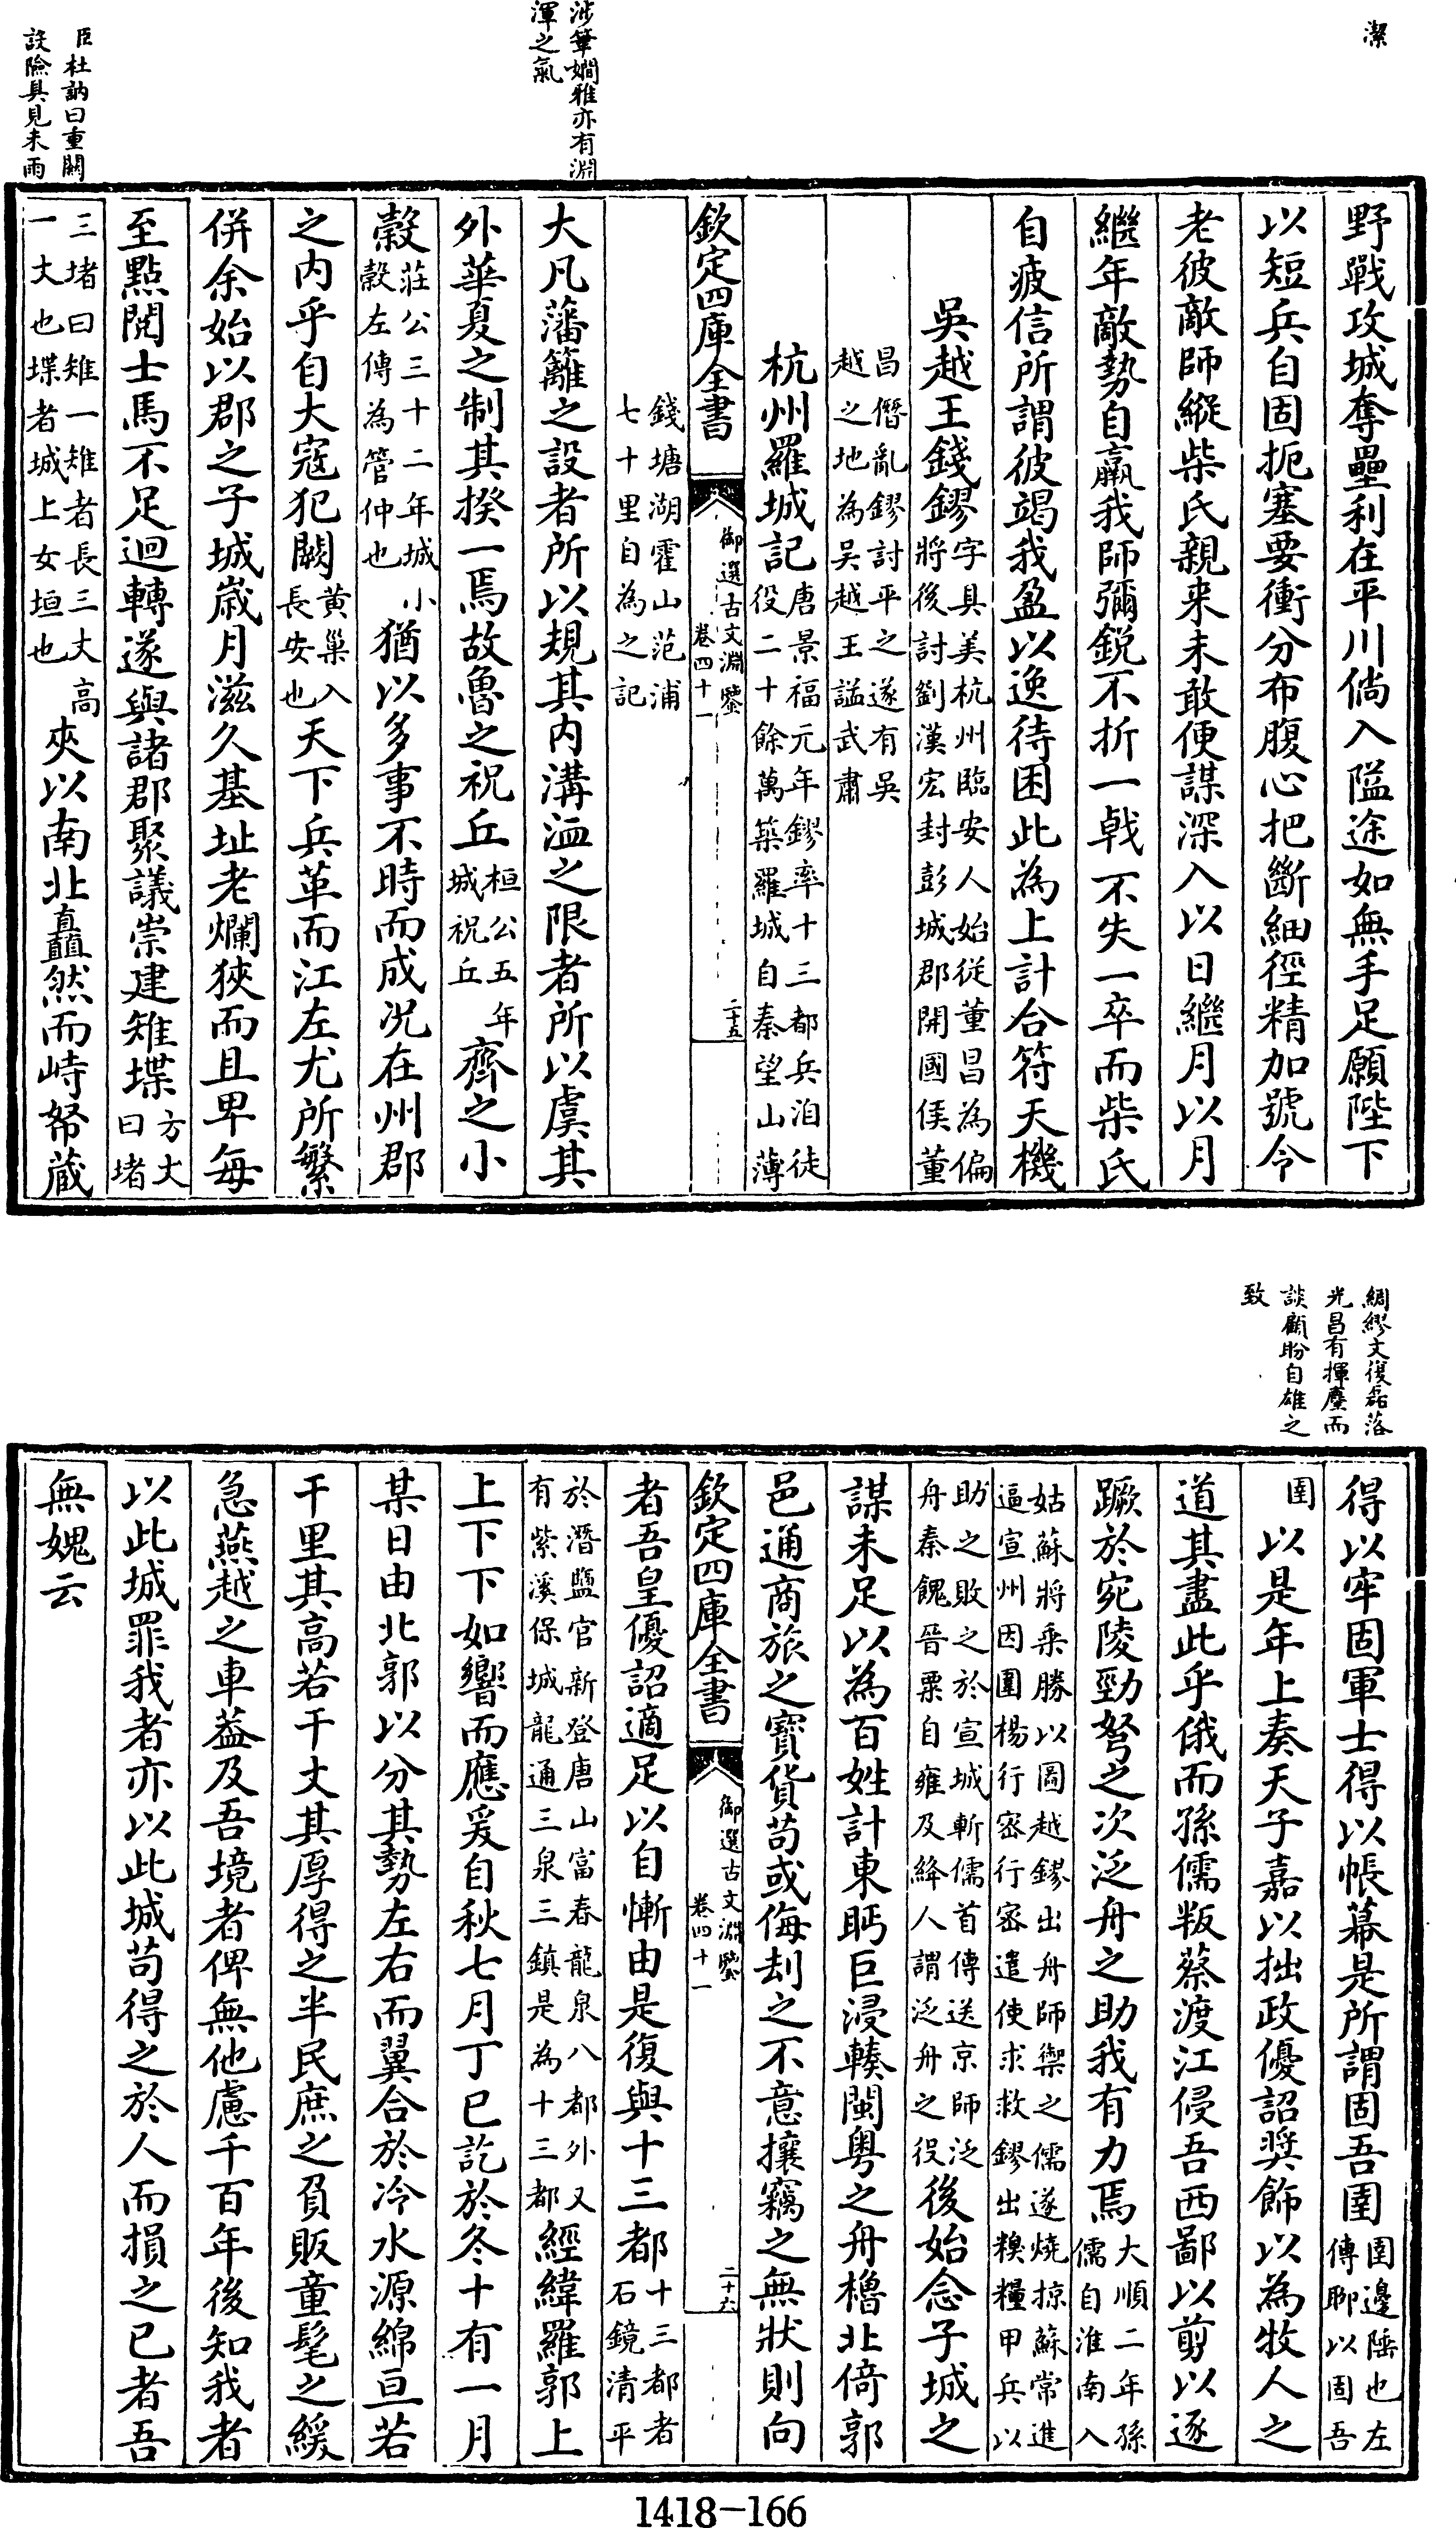 潔
野戰攻城奪壘利在平川倘入隘途如無手足願陛下
以短兵自固扼塞要衝分布腹心把斷細徑精加號令
老彼敵師縱柴氏親来未敢便謀深入以日繼月以月
繼年敵勢自羸我師彌銳不折一戟不失一卒而柴氏
自疲信所謂彼竭我盈以逸待困此為上計合符天機
吳越王錢鏐字具美杭州臨安人始從董昌為偏
將後討劉漢宏封彭城郡開國侯董
昌僭亂鏐討平之遂有吳
越之地為吳越王謚武肅
杭州羅城記唐景福元年鏐率十三都兵洎役徒
二十餘萬築羅城自秦望山薄
錢塘湖霍山范浦
七十里自為之記
欽定四庫全書
御選古文淵鑒
卷四十一
二十五
涉筆嫺雅亦有淵
渾之氣
大凡藩籬之設者所以規其内溝洫之限者所以虞其
外華夏之制其揆一焉故魯之祝丘桓公五年
城祝丘齊之小
穀莊公三十二年城小
穀左傳為管仲也猶以多事不時而成况在州郡
之内乎自大寇犯闕黄巢入
長安也天下兵革而江左尤所繁
併余始以郡之子城嵗月滋久基址老爛狹而且卑每
至點閱士馬不足迴轉遂與諸郡聚議崇建雉堞方丈
曰堵
三堵曰雉一雉者長三丈高
一丈也堞者城上女垣也夾以南北矗然而峙帑藏
臣杜訥曰重關
設險具見未雨
綢繆文復磊落
光昌有揮麈而
談顧盼自雄之
致
得以牢固軍士得以帳幕是所謂固吾圉圉邊陲也左
傳聊以固吾
圉以是年上奏天子嘉以拙政優詔奬飾以為牧人之
道其盡此乎俄而孫儒叛蔡渡江侵吾西鄙以剪以逐
蹶於宛陵勁弩之次泛舟之助我有力焉大順二年孫
儒自淮南入
姑蘇將乘勝以圖越鏐出舟師禦之儒遂燒掠蘇常進
逼宣州因圍楊行密行密遣使求救鏐出糗糧甲兵以
助之敗之於宣城斬儒首傳送京師泛
舟秦餽晉粟自雍及絳人謂泛舟之役後始念子城之
謀未足以為百姓計東眄巨浸輳閩粤之舟櫓北倚郭
邑通商旅之寶貨苟或侮刦之不意攘竊之無狀則向
欽定四庫全書
御選古文淵鑒
卷四十一
二十六
者吾皇優詔適足以自慚由是復與十三都十三都者
石鏡清平
於潛鹽官新登唐山富春龍泉八都外又
有紫溪保城龍通三泉三鎮是為十三都經緯羅郭上
上下下如響而應爰自秋七月丁巳訖於冬十有一月
某日由北郭以分其勢左右而翼合於冷水源綿亘若
干里其高若干丈其厚得之半民庶之負販童髦之緩
急燕越之車葢及吾境者俾無他慮千百年後知我者
以此城罪我者亦以此城苟得之於人而損之已者吾
無媿云
1418-166